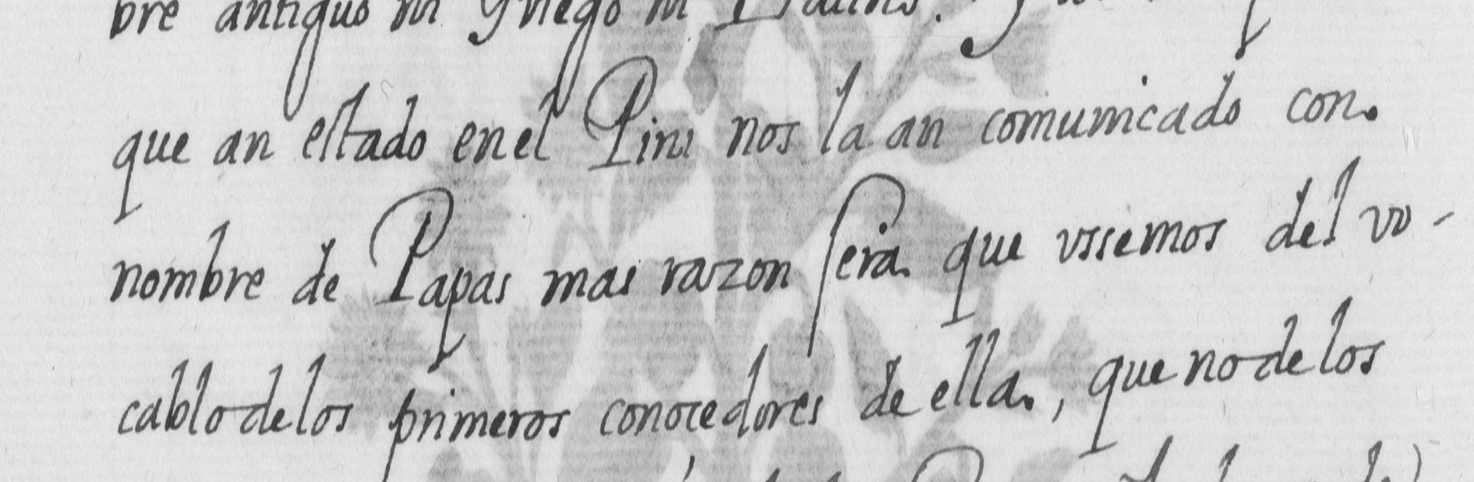 bre antiguo ni Griego ni Latino.
que an estado en el Piru nos la an comunicado con
nombre de Papas mas razon sera que usemos del vo-
cablo de los primeros conocedores de ella, que no de los